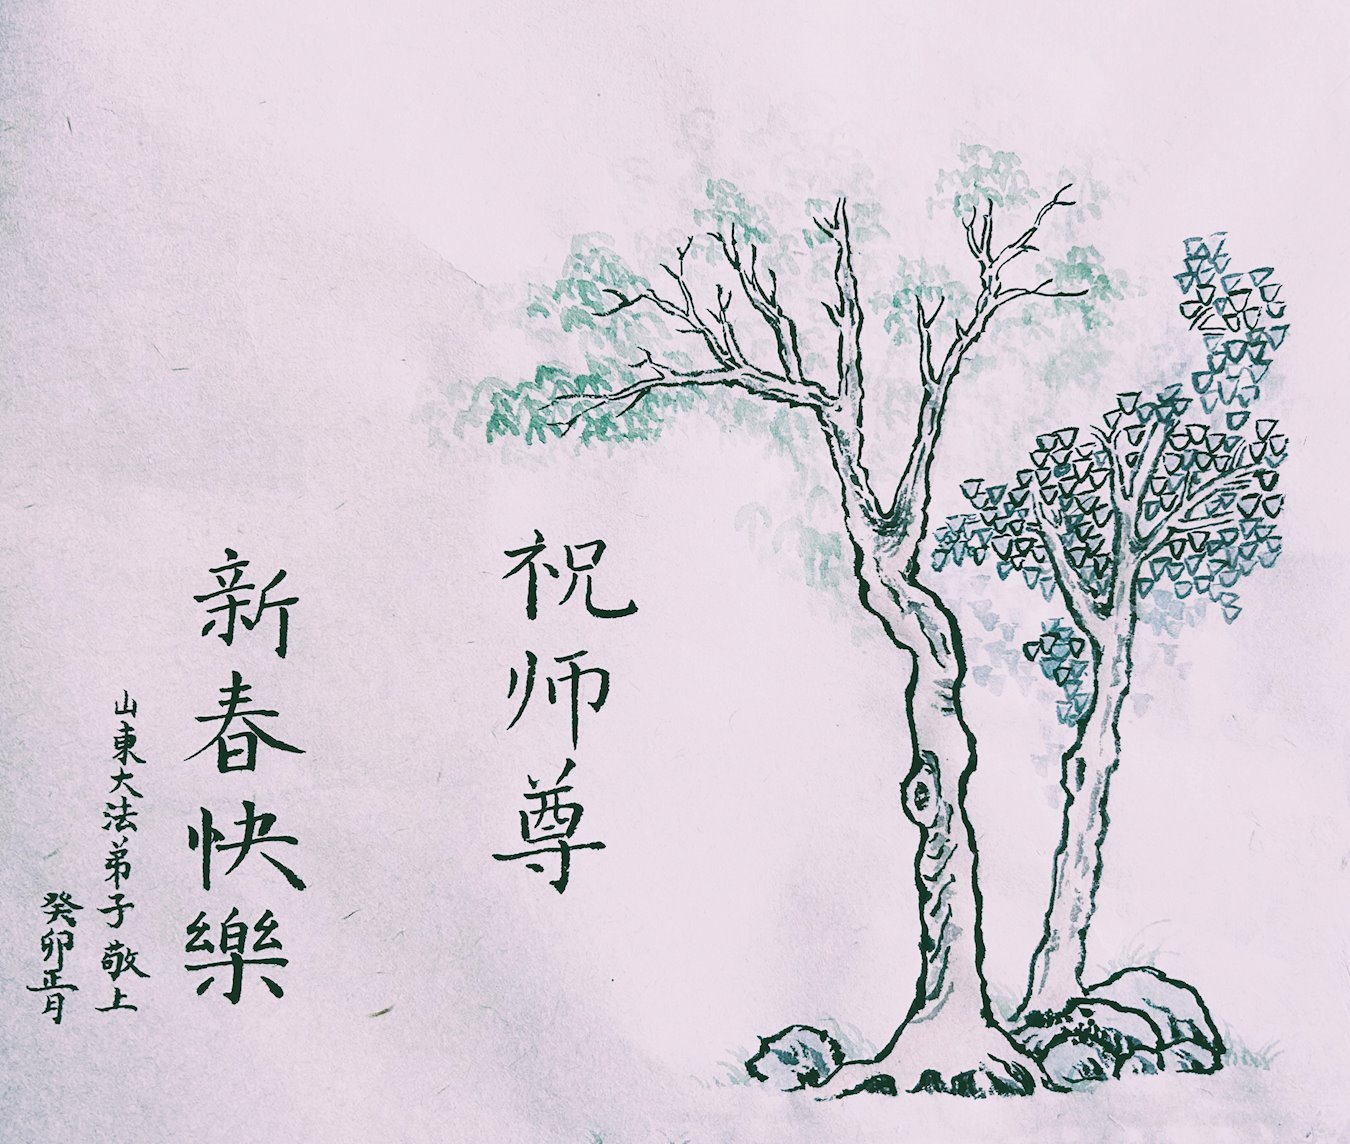 祝师尊
新春快樂
山東大法弟子敬上
癸卯正月